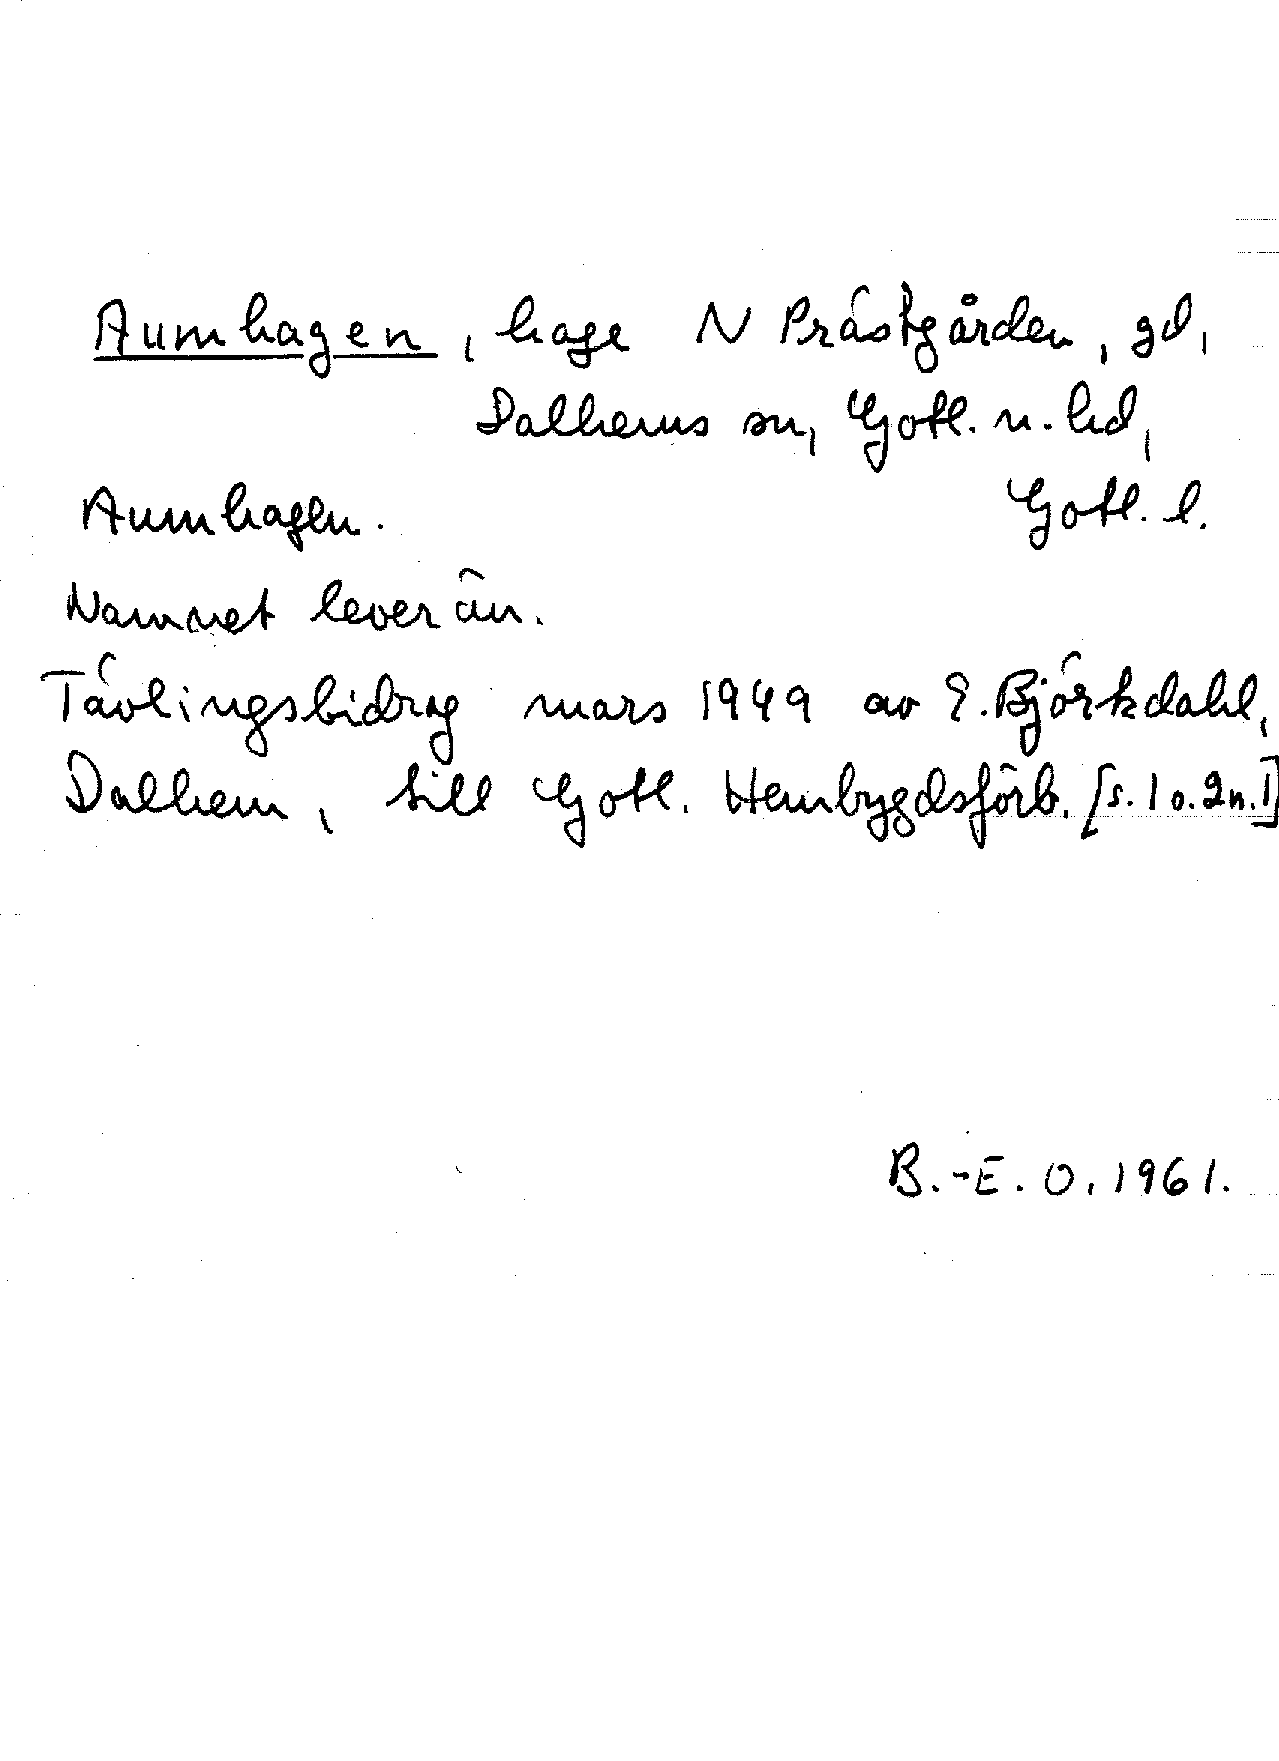 Aumhagen, hage N Prästgården, gd,
Dalhems sn, Gotl. n. hd,
Aumhagen. Gotl. l.
Namnet lever än.
Tävlingsbidrag mars 1949 av E. Björkdahl,
Dalhem, till Gotl. Hembygdsförb. [s. 1 o. 2 n. 1]
B.-E. O. 1961.